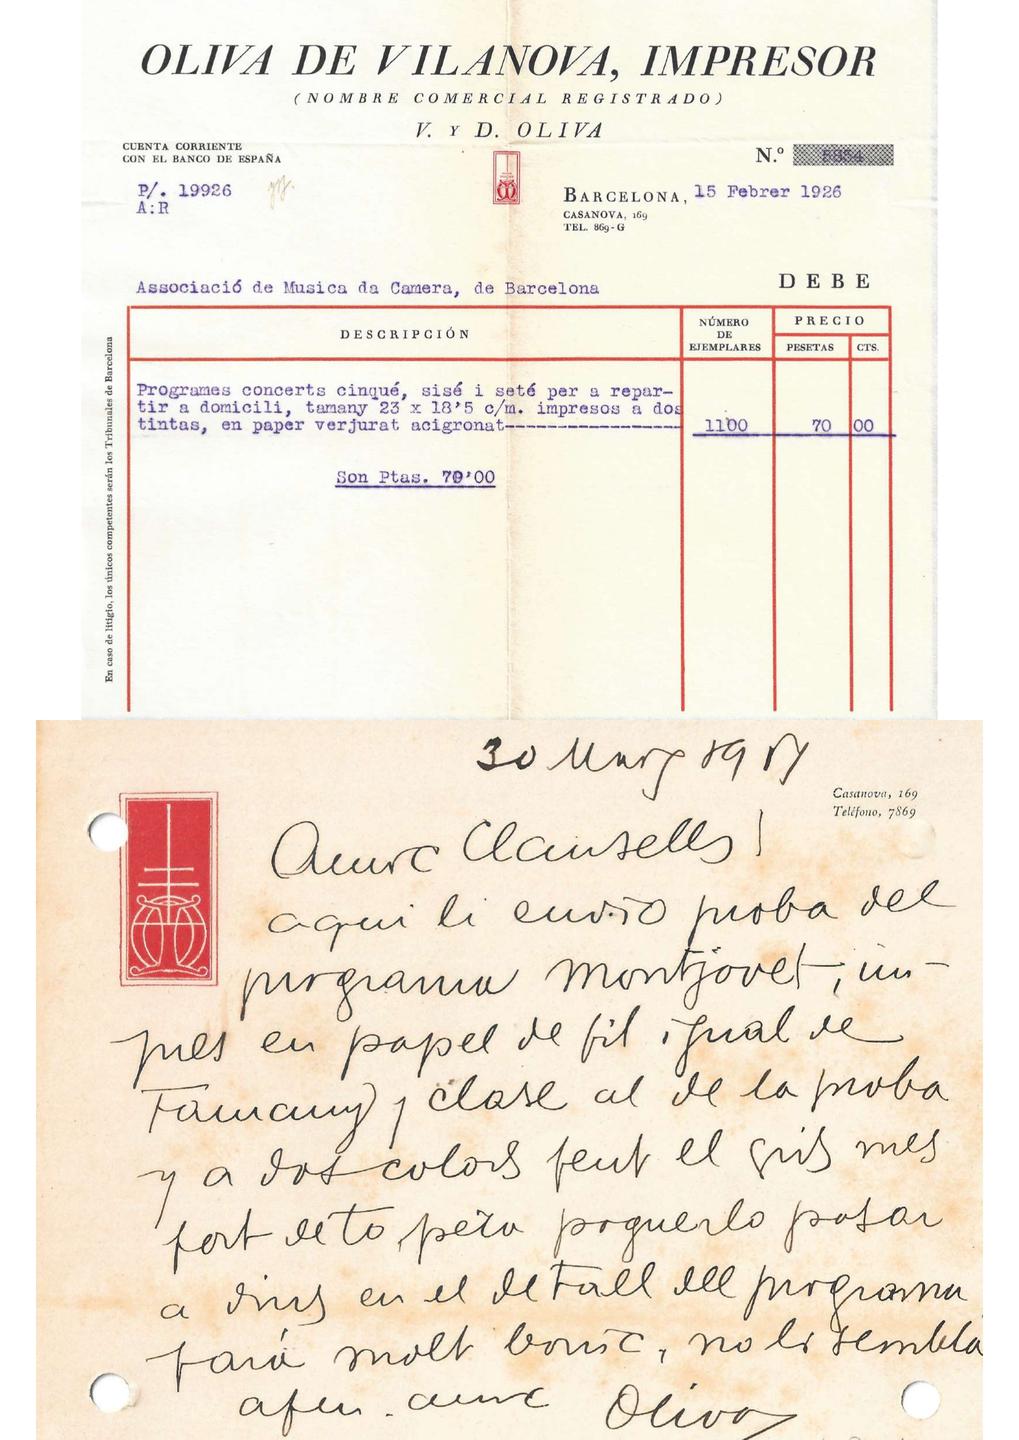 OLIVA DE VILANOVA, IMPRESOR
(NOMBRE COMERCIAL REGISTRADO)
V. Y D. OLIVA
CUENTA CORRIENTE
CON EL BANCO DE ESPAÑA
N.º 5854
P/. 19926
A:R
BARCELONA, 15 Febrer 1926
CASANOVA, 169
TEL. 869-G
Associació de Musica da Camera, de Barcelona
DEBE
DESCRIPCIÓN
NÚMERO
DE
EJEMPLARES
PRECIO
PESETAS CTS.
Programes concerts cinqué, sisé i seté per a repar-
tir a domicili, tamany 23 x 18'5 c/m. impresos a dos
tintas, en paper verjurat acigronat-------------------- 1100 70 00
Son Ptas. 70'00
En caso de litigio, los únicos competentes serán los Tribunales de Barcelona
30 Març
Casanova, 169
Teléfono, 7869
Amic Clausells!
aqui li envio proba del
programa Montjovet, im-
pres en papel de fil igual de
Tamany y clase al de la proba
y a dos colors fent el gris mes
fort de to, pero poguerlo posar
a dins en el detall del programa
fará molt bonic, no li sembla
afm. amic Oliva